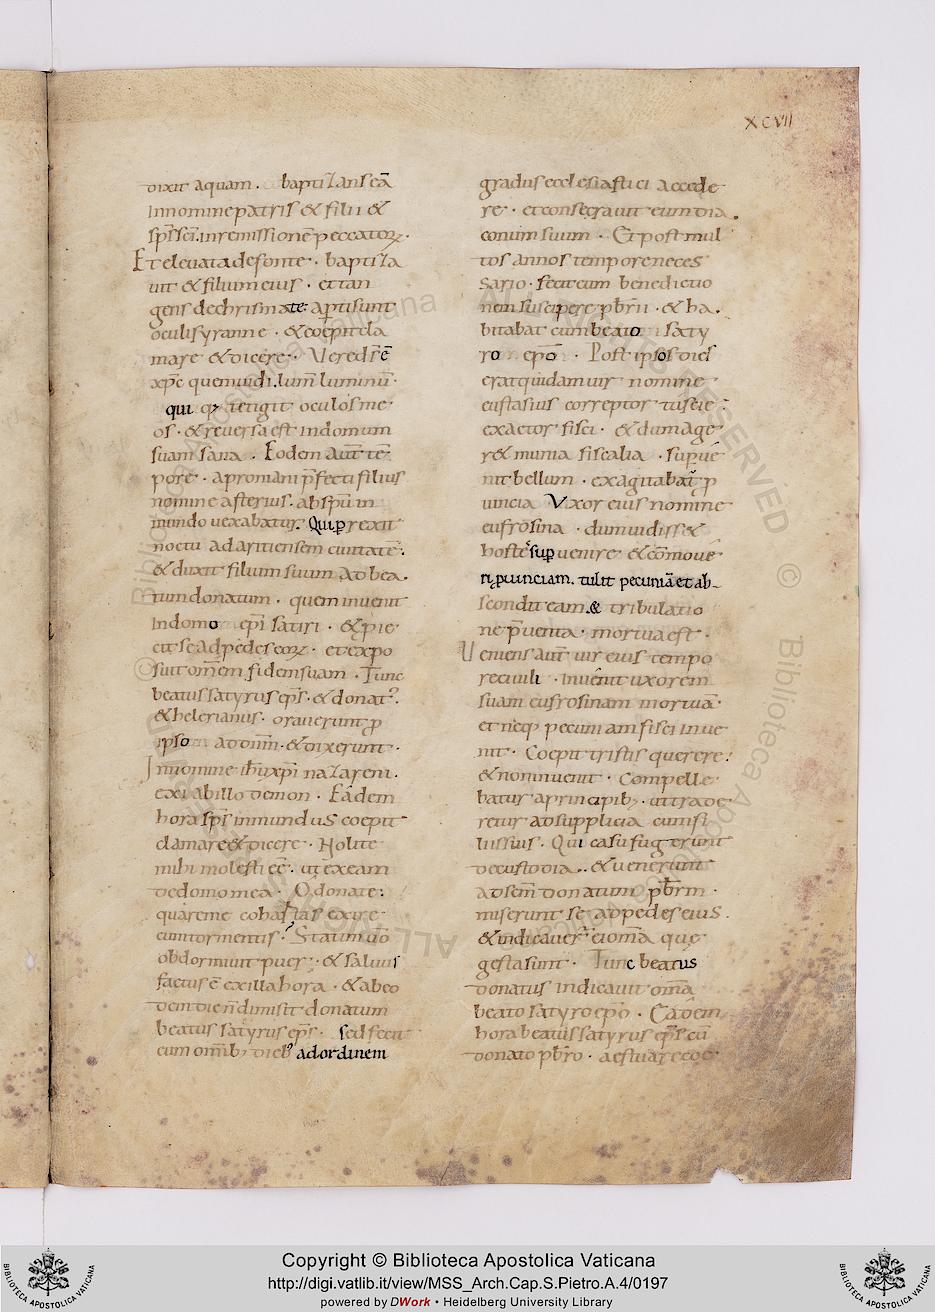 XCVII
dixit aquam. baptizans eā
in nomine patris & filii &
sp̄s sc̄i. in remissionē peccatoꝝ.
Et eleuata de fonte. baptiza
uit & filium eius. et tan
gens de chrismate aptisunt
oculi syranne. & coepit cla
mare & dicere. Vere d̄s ē
xp̄c quem uidi. lum̄ luminū.
qui tetigit oculos me
os. & reuersa est in domum
suam sana. Eodem aut̄ tē
pore. apromani p̄fecti filius
nomine asterius. ab sp̄u in
mundo uexabatur. Qui prexit
noctu ad aritiensem ciuitatē.
& duxit filium suum. ad bea.
tum donatum. quem inuenit
in domo ep̄i satiri. & p̄ie
cit se ad pedes eoꝝ. et expo
suit om̄em fidem suam. Tunc
beatus satyrus ep̄s. & donatꝰ.
& helerianus. orauerunt ꝓ
ipso ad dn̄m. & dixerunt.
In nomine ih̄u xp̄i nazareni.
exi ab illo demon. Eadem
hora sp̄s inmundus coepit
clamare & dicere. Nolite
mihi molesti eē. ut exeam
de domo mea. O donate.
quare me exire
cum tormentis. Statim u͞o
obdormiuit puer. & saluus
factus ē ex illa hora. & abeo
dem die n̄ dimisit donatum
beatus satyrus ep̄s. sed fecit
eum om̄ibꝫ diebꝰ ad ordinem
gradus ecclesiastici accede
re. et consecrauit eum dia.
conum suum. Et post mul
tos annos tempore neces
sario. fecit eum benedictio
nem suscipere pb̄rii. & ha.
bitabat cum beato saty
ro ep̄o. Post ipsos dies
erat quidam uir nomine
eustasius correptor tuscie.
exactor fisci. & dum age
r& munia fiscalia. sup̄uē
nit bellum. exagitabat̄ ꝓ
uincia. Vxor eius nomine
eufrosina. dum uidiss&
hostē sup uenire & cōmoue
ri ꝓuinciam. tulit pecuniā et ab-
scondit eam. & tribulatio
ne p̄uenta. mortua est.
Veniens aut̄ uir eius tempo
re ciuili. inuenit uxorem
suam eufrosinam mortuā.
et neq; pecuniam fisci inue
nit. Coepit tristis querere.
& non inuenit. Compelle
batur a principibꝫ. ut trade
retur ad supplicia cum fi
liis suis. Qui casu fugerunt
de custodia. & uenerunt
ad sc̄m donatum pb̄rm.
miserunt se ad pedes eius.
& indicauer̄ ei om̄a que
gesta sunt. Tunc beatus
donatus indicauit om̄a
beato satyro ep̄o. Eadem
hora beatus satyrus ep̄s cū
donato pb̄ro. aestuare coe
Copyright © Biblioteca Apostolica Vaticana
http://digi.vatlib.it/view/MSS_Arch.Cap.S.Pietro.A.4/0197
powered by DWork • Heidelberg University Library
BIBLIOTECA APOSTOLICA VATICANA
BIBLIOTECA APOSTOLICA VATICANA
© Biblioteca Apostolica Vaticana ALL RIGHTS RESERVED
© Biblioteca Apostolica Vaticana ALL RIGHTS RESERVED